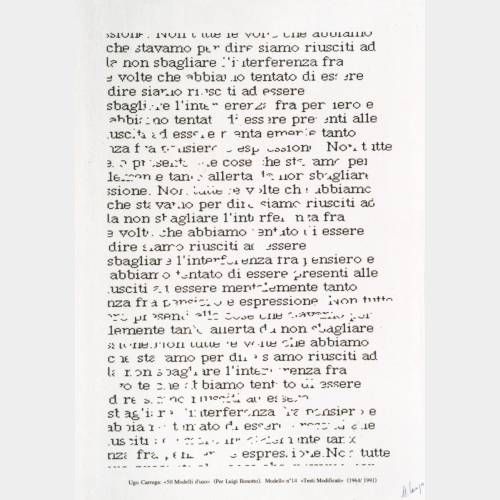 ssione. Non tutte le volte che abbiamo
che stavamo per dire siamo riusciti ad
la non sbagliare l'interferenza fra
e volte che abbiamo tentato di essere
dire siamo riusciti ad essere
sbagliare l'interferenza fra pensiero e
abbiamo tentat di essere presenti alle
iusciti ad essere mentalmente tanto
nza fra pensiero e espressione. Non tutte
presenti alle cose che stavamo per
lemente tanto allerta da non sbagliare
ssione. Non tutte le volte che abbiamo
che stavamo per dire siamo riusciti ad
la non sbagliare l'interferenza fra
e volte che abbiamo tentato di essere
dire siamo riusciti ad essere
sbagliare l'interferenza fra pensiero e
abbiamo tentato di essere presenti alle
iusciti ad essere mentalemente tanto
nza fra pensiero e espressione. Non tutto
presenti alle cose che stavamo per
lemente tanto allerta da non sbagliare
sione. Non tutte le volte che abbiamo
che stavamo per dire siamo riusciti ad
la non sbagliare l'interferenza fra
volte che abbiamo tentato di essere
dire siamo riusciti ad essere
sbagliare l'interferenza fra pensiero e
abbiamo tentato di essere presenti alle
iusciti ad essere mentalemente tanto
nza fra pensiero e espressione. Non tut
Ugo Carrega: «50 Modelli d'uso» (Per Luigi Bonotto). Modello n°14 «Testi Modificati» (1964/ 1991)